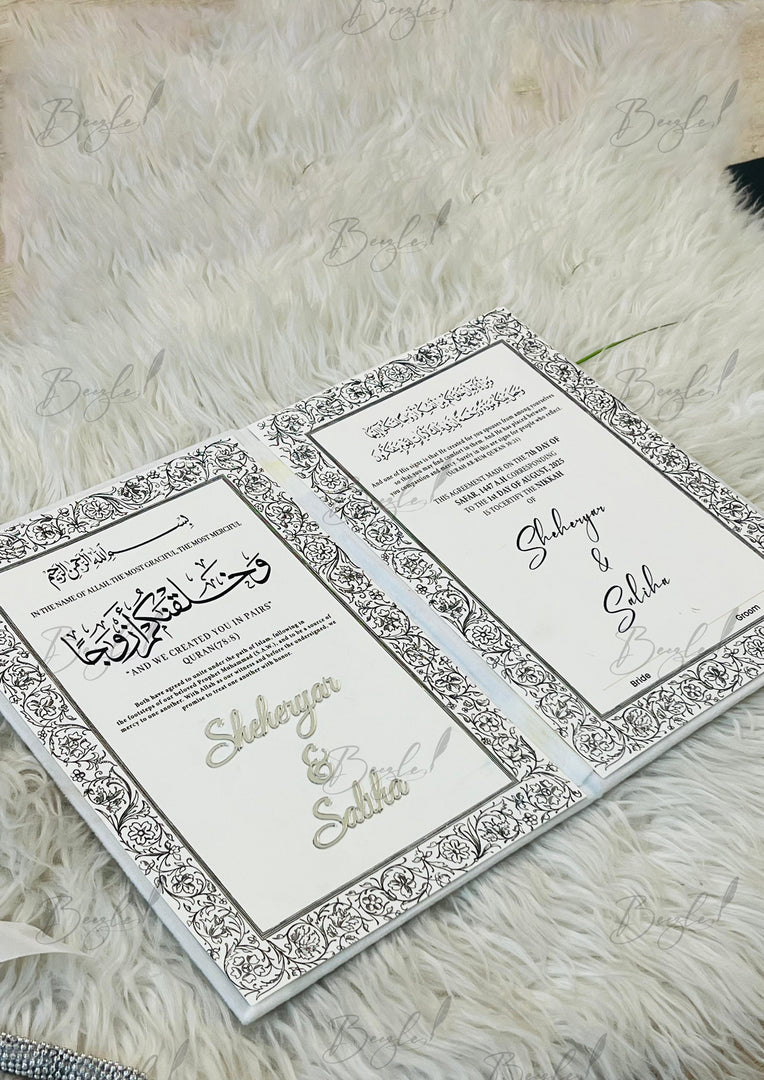 بسم الله الرحمن الرحيم
IN THE NAME OF ALLAH, THE MOST GRACIFUL, THE MOST MERCIFUL
وَخَلَقْنَٰكُمْ أَزْوَٰجًا
"AND WE CREATED YOU IN PAIRS"
QURAN(78-8)
Both have agreed to unite under the path of Islam, following in
the footsteps of our beloved Prophet Muhammad (S.A.W.), and to be a source of
mercy to one another. With Allah as our witness and before the undersigned, we
promise to treat one another with honor.
Sheheryar
&
Saliha
And one of His signs is that He created for you spouses from among yourselves
so that you may find comfort in them. And He has placed between
you compassion and mercy. Surely in this are signs for people who reflect.
(SURAH AR-RUM QURAN 30:21)
THIS AGREEMENT MADE ON THE 7th DAY OF
SAFAR, 1447 A.H. CORRESPONDING
TO THE 1st DAY OF AUGUST, 2025
IS TO CERTIFY THE NIKKAH
OF
Sheheryar
&
Saliha
Bride
Groom
Beezle
Beezle
Beezle
Beezle
Beezle
Beezle
Beezle
Beezle
Beezle
Beezle